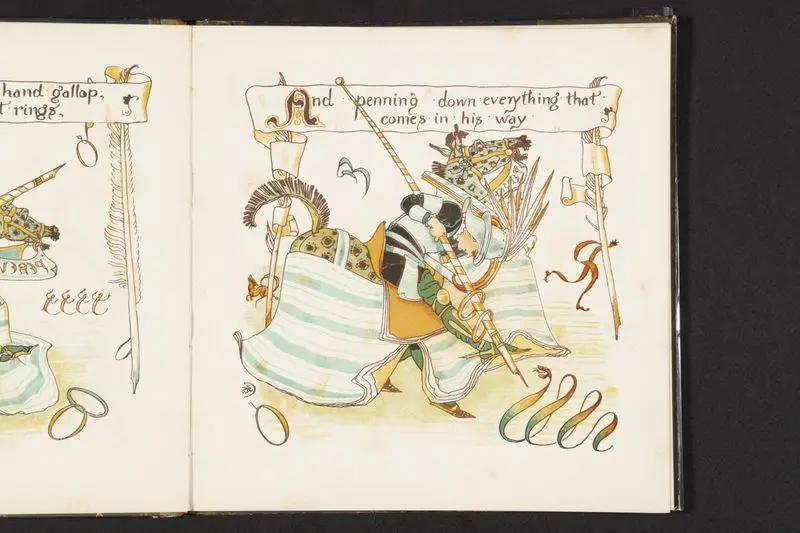 hand gallop,
t rings,
And penning down everything that
comes in his way